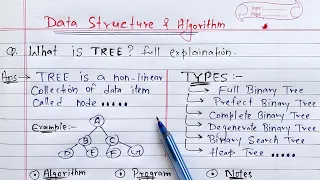 Data Structure & Algorithm
Q. What is TREE? full explaination.
Ans → TREE is a non-linear
Collection of data item
Called node .....
Example:-
A
B
C
D
E
F
TYPES :-
→ Full Binary Tree
→ Prefect Binary Tree
→ Complete Binary Tree
→ Degenerate Binary Tree
→ Binary Search Tree
→ Heap Tree .....
Algorithm
Program
Notes